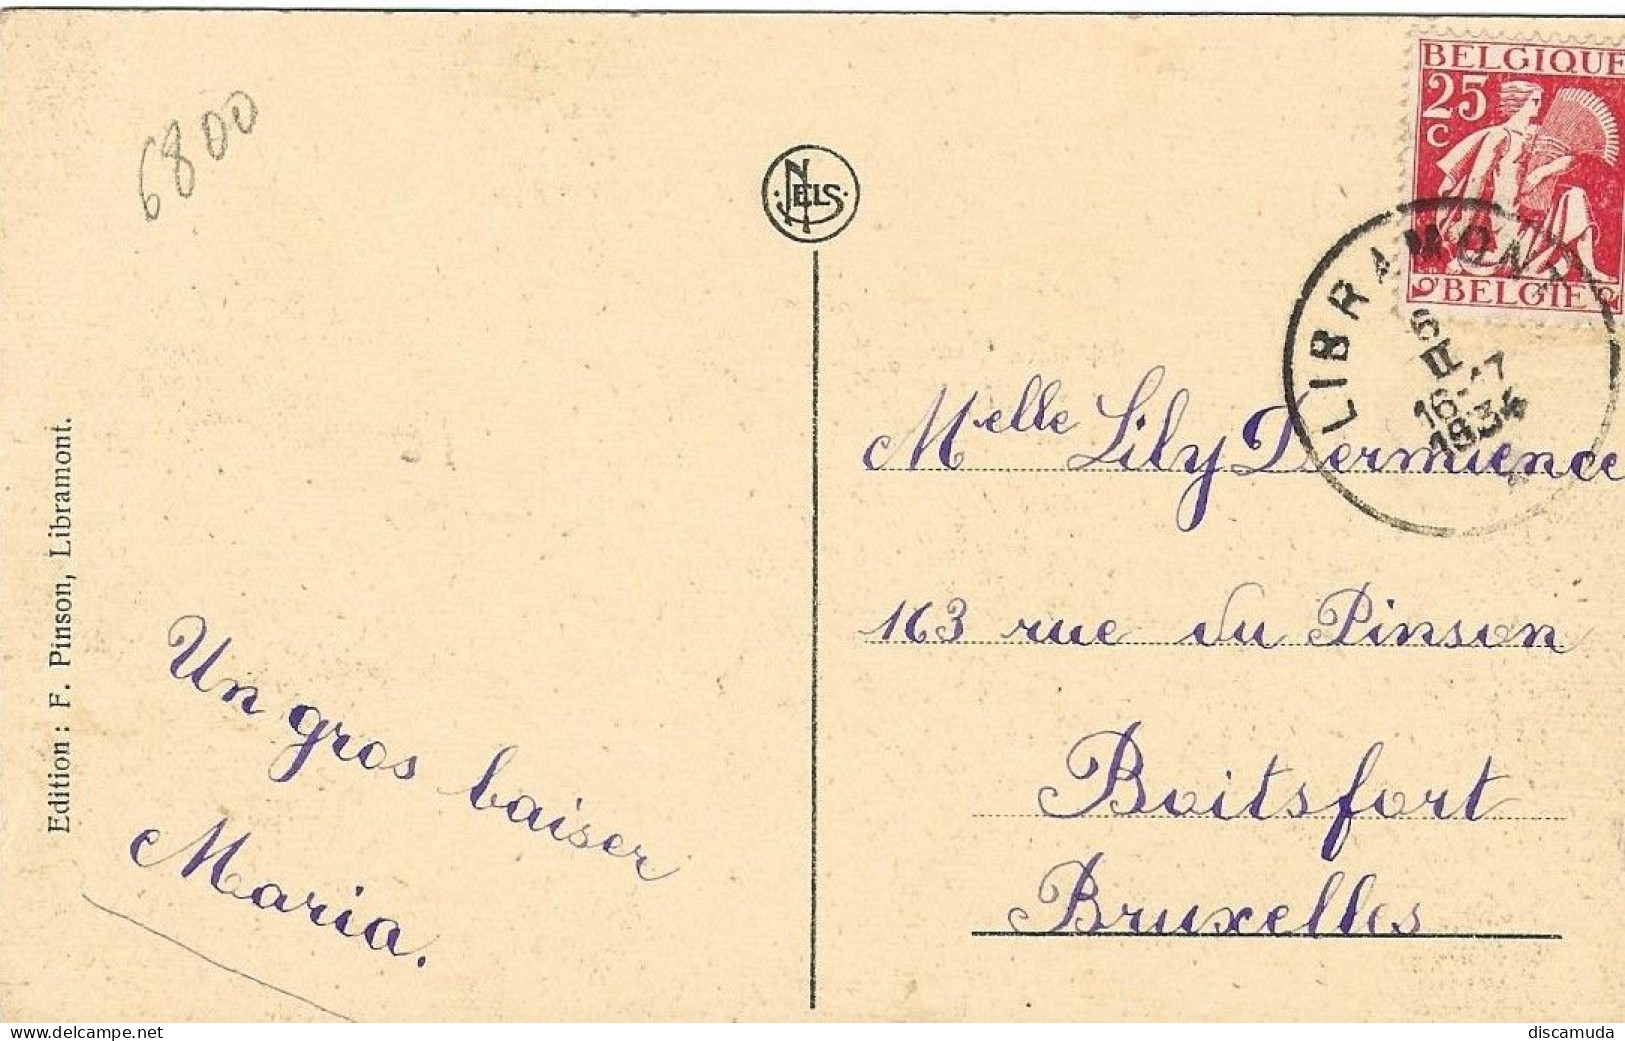 6800
Edition : F. Pinson, Libramont.
Un gros baiser
Maria.
NELS
BELGIQUE
25
C
BELGIË
LIBRAMONT
6
II
16-17
193
Melle Lily Dermience
163 rue du Pinson
Boitsfort
Bruxelles
www.delcampe.net
discamuda